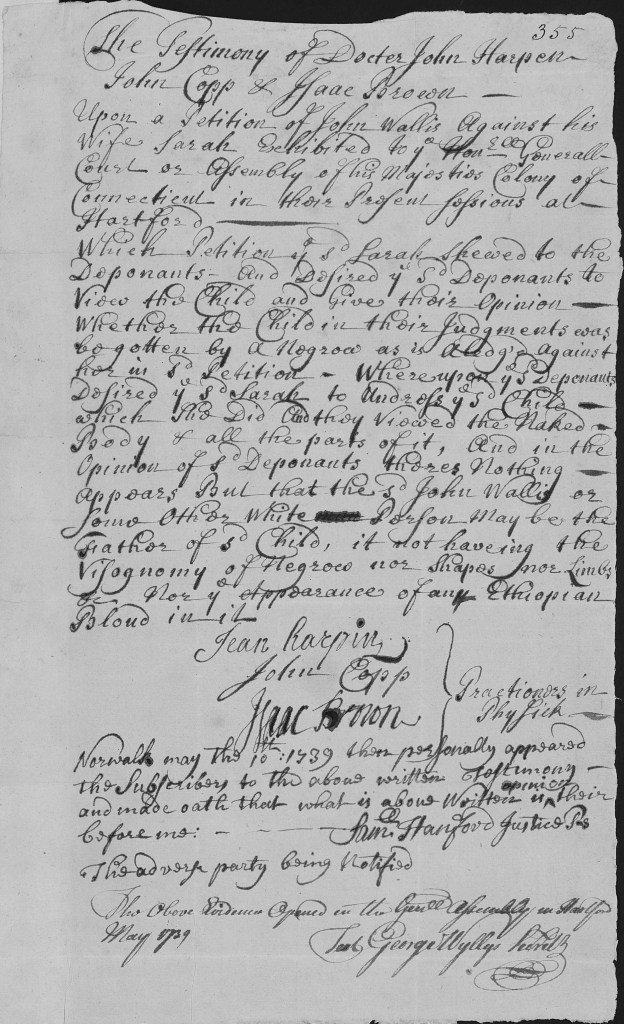 355
The Testimony of Docter John Harpen
John Copp & Isaac Brown —
Upon a Petition of John Wallis Against his
Wife Sarah Exhibited to ye Honrll Generall
Court or Assembly of his Majesties Colony of
Connecticut in their Present Sessions at
Hartford —
Which Petition ye sd Sarah Shewed to the
Deponants - And Desired ye sd Deponants to
View the Child and Give their Opinion —
Whether the Child in their Judgments was
begotten by a Negrow as is Aledgd Against
her in sd Petition - Where upon ye sd Deponants
Desired ye sd Sarah to Undress ye sd Child —
which She Did And they Viewed the Naked
Body & all the parts of it, And in the
Opinion of sd Deponants theres Nothing —
appears But that the sd John Wallis or
Some Other White Person May be the
Father of sd Child, it not haveing the
Visognomy of Negrow nor Shapes nor Limbs
Nor ye Appearance of any Ethiopian
Bloud in it
Jean harpin
John Copp
Isaac Brown
Practioners in
Physick —
Norwalk may the 10th: 1739 then personally appeared
the Subscribers to the above written Testimony —
and made oath that what is above Written is their opinion
before me: - — Samll Hanford Justice Ps
The adverse party being Notified
The Above Evidence Opened in the Genll Assembly in Hartford
May 1739
Test George Wyllys Secrety